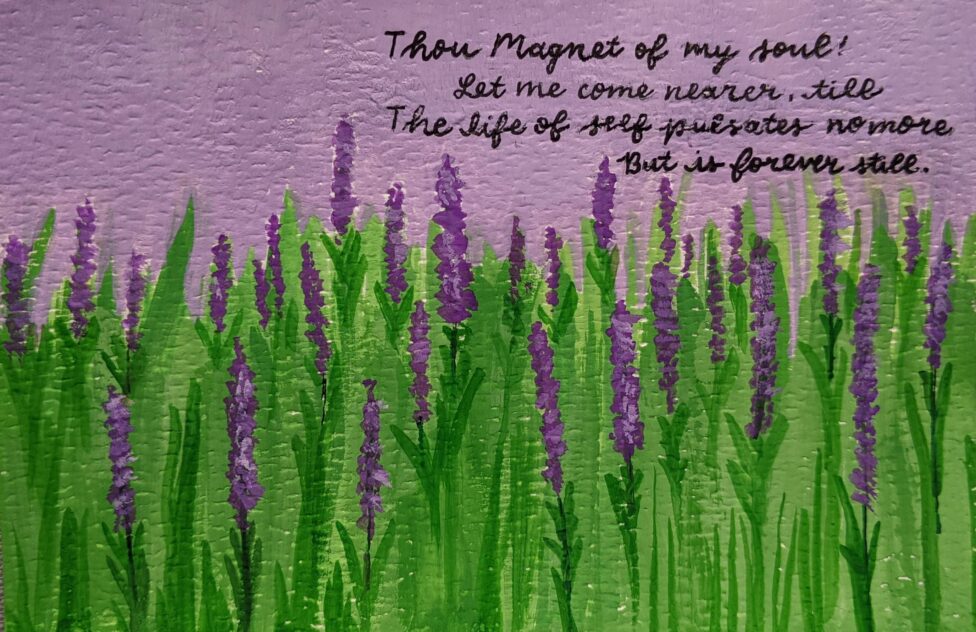 Thou Magnet of my soul!
Let me come nearer, till
The life of self pulsates no more
But is forever still.